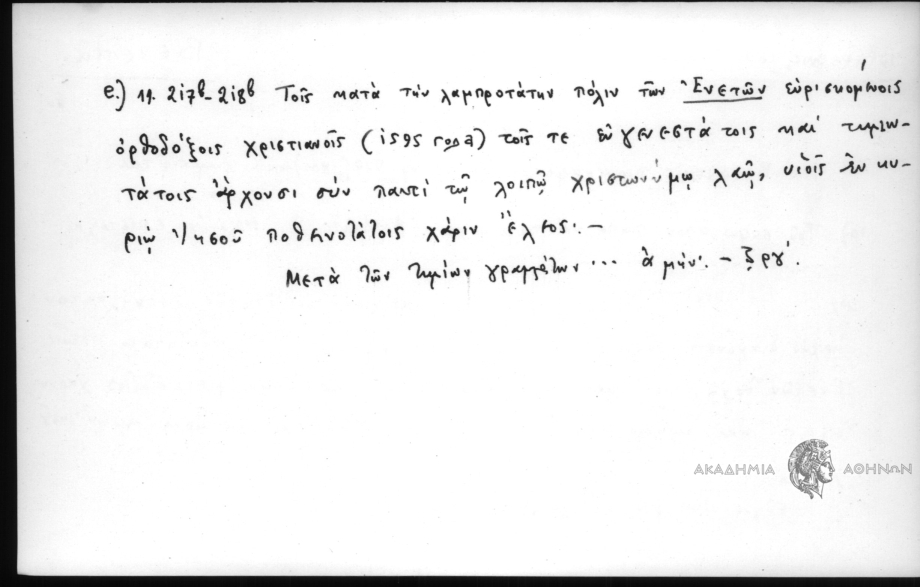 e.) 11. 217β-218β Τοῖς κατὰ τὴν λαμπροτάτην πόλιν τῶν Ἐνετῶν εὑρισκομένοις
ὀρθοδόξοις χριστιανοῖς (1595 года) τοῖς τε εὐγενεστάτοις καὶ τιμιω-
τάτοις ἄρχουσι σὺν παντὶ τῷ λοιπῷ χριστωνύμῳ λαῷ, υἱοῖς ἐν κυ-
ρίῳ Ἰησοῦ ποθεινοτάτοις χάριν ἔλεος. –
Μετὰ τῶν τιμίων γραμμάτων ... ἀμήν. – ζργ΄.
ΑΚΑΔΗΜΙΑ ΑΘΗΝΩΝ